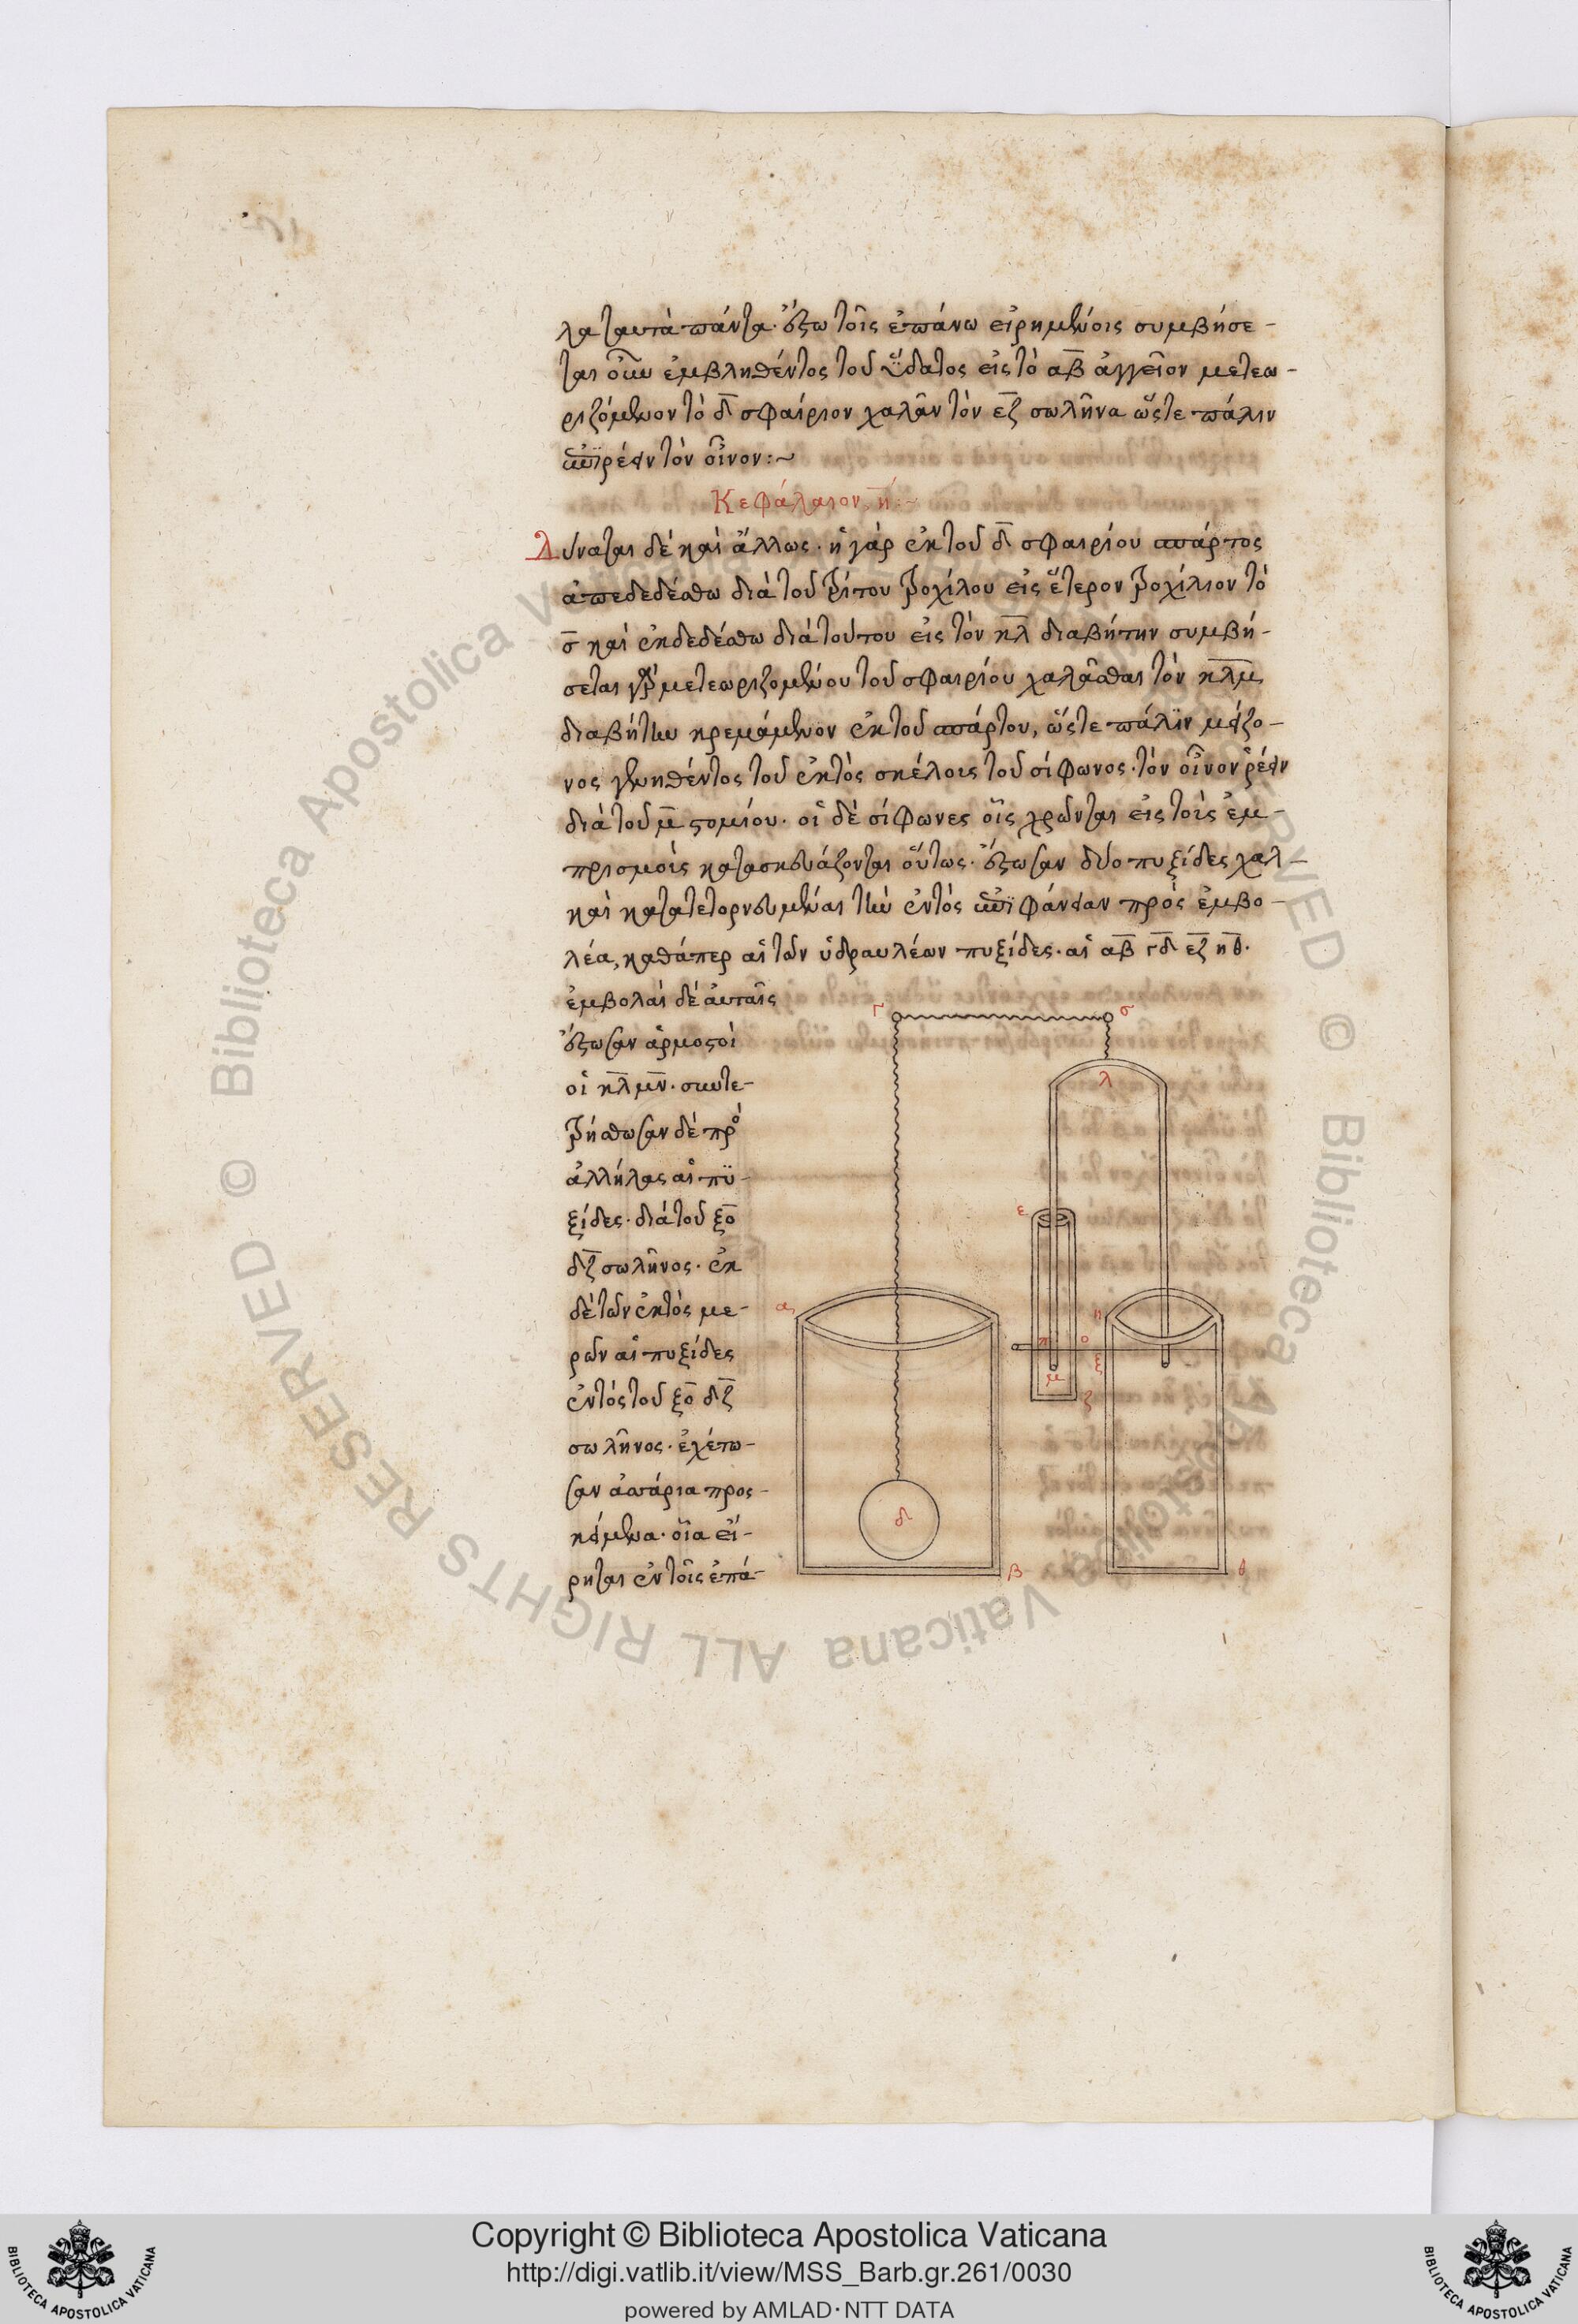 λα ταυτὰ πάντα. ἔστω τοῖς ἐπάνω εἰρημένοις συμβήσε-
ται οὖν ἐμβληθέντος τοῦ ὕδατος εἰς τὸ αβ ἀγγεῖον μετεω-
ριζόμενον τὸ δ σφαίριον χαλᾶν τὸν εζ σωλῆνα ὥστε πάλιν
ἐπιρέειν τὸν οἶνον:~
Κεφάλαιον, η:~
Δύναται δὲ καὶ ἄλλως. ἡ γὰρ ἐκ τοῦ δ σφαιρίου σπάρτος
ἀπεδεδέσθω διὰ τοῦ τρίτου τροχίλου εἰς ἕτερον τροχίλιον τὸ
σ καὶ ἐκδεδέσθω διὰ τούτου εἰς τὸν κλ διαβήτην συμβή-
σεται γὰρ μετεωριζομένου τοῦ σφαιρίου χαλᾶσθαι τὸν κλμ
διαβήτην κρεμάμενον ἐκ τοῦ σπάρτου, ὥστε πάλιν μείζο-
νος γενηθέντος τοῦ ἐκτὸς σκέλους τοῦ σίφωνος. τὸν οἶνον ῥέειν
διὰ τοῦ μ στομίου. οἱ δὲ σίφωνες οἷς χρῶνται εἰς τοὺς ἐμ-
πρισμοὺς κατασκευάζονται οὕτως. ἔστωσαν δύο πυξίδες χαλ-
καὶ κατατετορνευμέναι τὴν ἐντὸς ἐπιφάνειαν πρὸς ἐμβο-
λέα, καθάπερ αἱ τῶν ὑδραυλέων πυξίδες. αἱ αβ γδ εζ ηθ.
ἐμβολαὶ δὲ αὐταῖς
ἔστωσαν ἁρμοστοὶ
οἱ κλ μν. συντε-
τρήσθωσαν δὲ πρὸ
ἀλλήλας αἱ πυ-
ξίδες. διὰ τοῦ ξο
δζ σωλῆνος. ἐκ
δὲ τῶν ἐκτὸς με-
ρῶν αἱ πυξίδες
ἐντὸς τοῦ ξο δζ
σωλῆνος. ἐχέτω-
σαν ἀσπάρια προς-
κείμενα. οἷα εἴ-
ρηται ἐν τοῖς ἐπά-
γ σ
λ
ε
α η
π ο ξ
μ ζ
δ
β θ
Copyright © Biblioteca Apostolica Vaticana
http://digi.vatlib.it/view/MSS_Barb.gr.261/0030
powered by AMLAD·NTT DATA
BIBLIOTECA APOSTOLICA VATICANA
BIBLIOTECA APOSTOLICA VATICANA
© Biblioteca Apostolica Vaticana ALL RIGHTS RESERVED